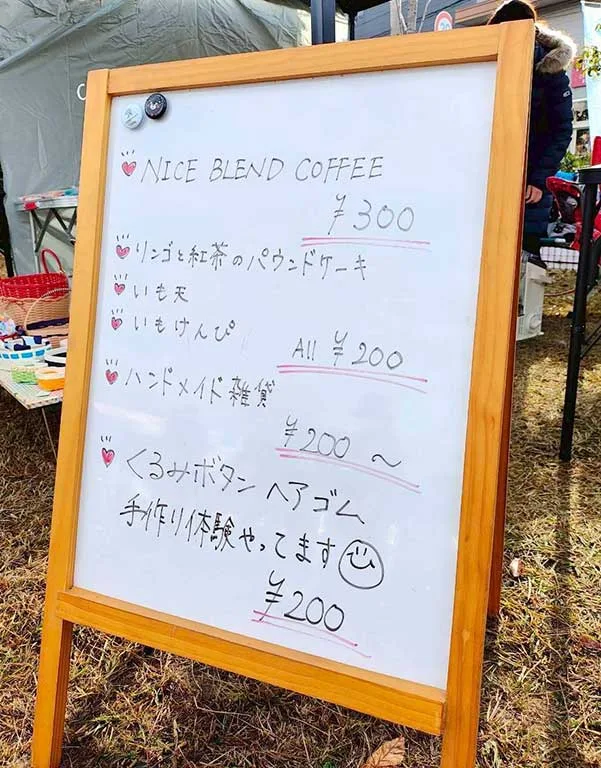 NICE BLEND COFFEE
¥300
リンゴと紅茶のパウンドケーキ
いも天
いもけんぴ
All ¥200
ハンドメイド雑貨
¥200~
くるみボタン ヘアゴム
手作り体験やってます
¥200